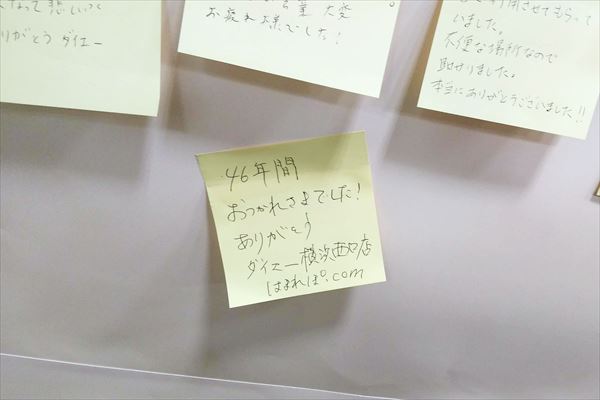 なって悲しいって
りがとう ダイエー
営業 大変
お疲れ様でした!
用させてもらって
いました。
不便な場所なので
助かりました。
本当にありがとうございました!!
46年間
おつかれさまでした!
ありがとう
ダイエー横浜西口店
はまれぽ.com